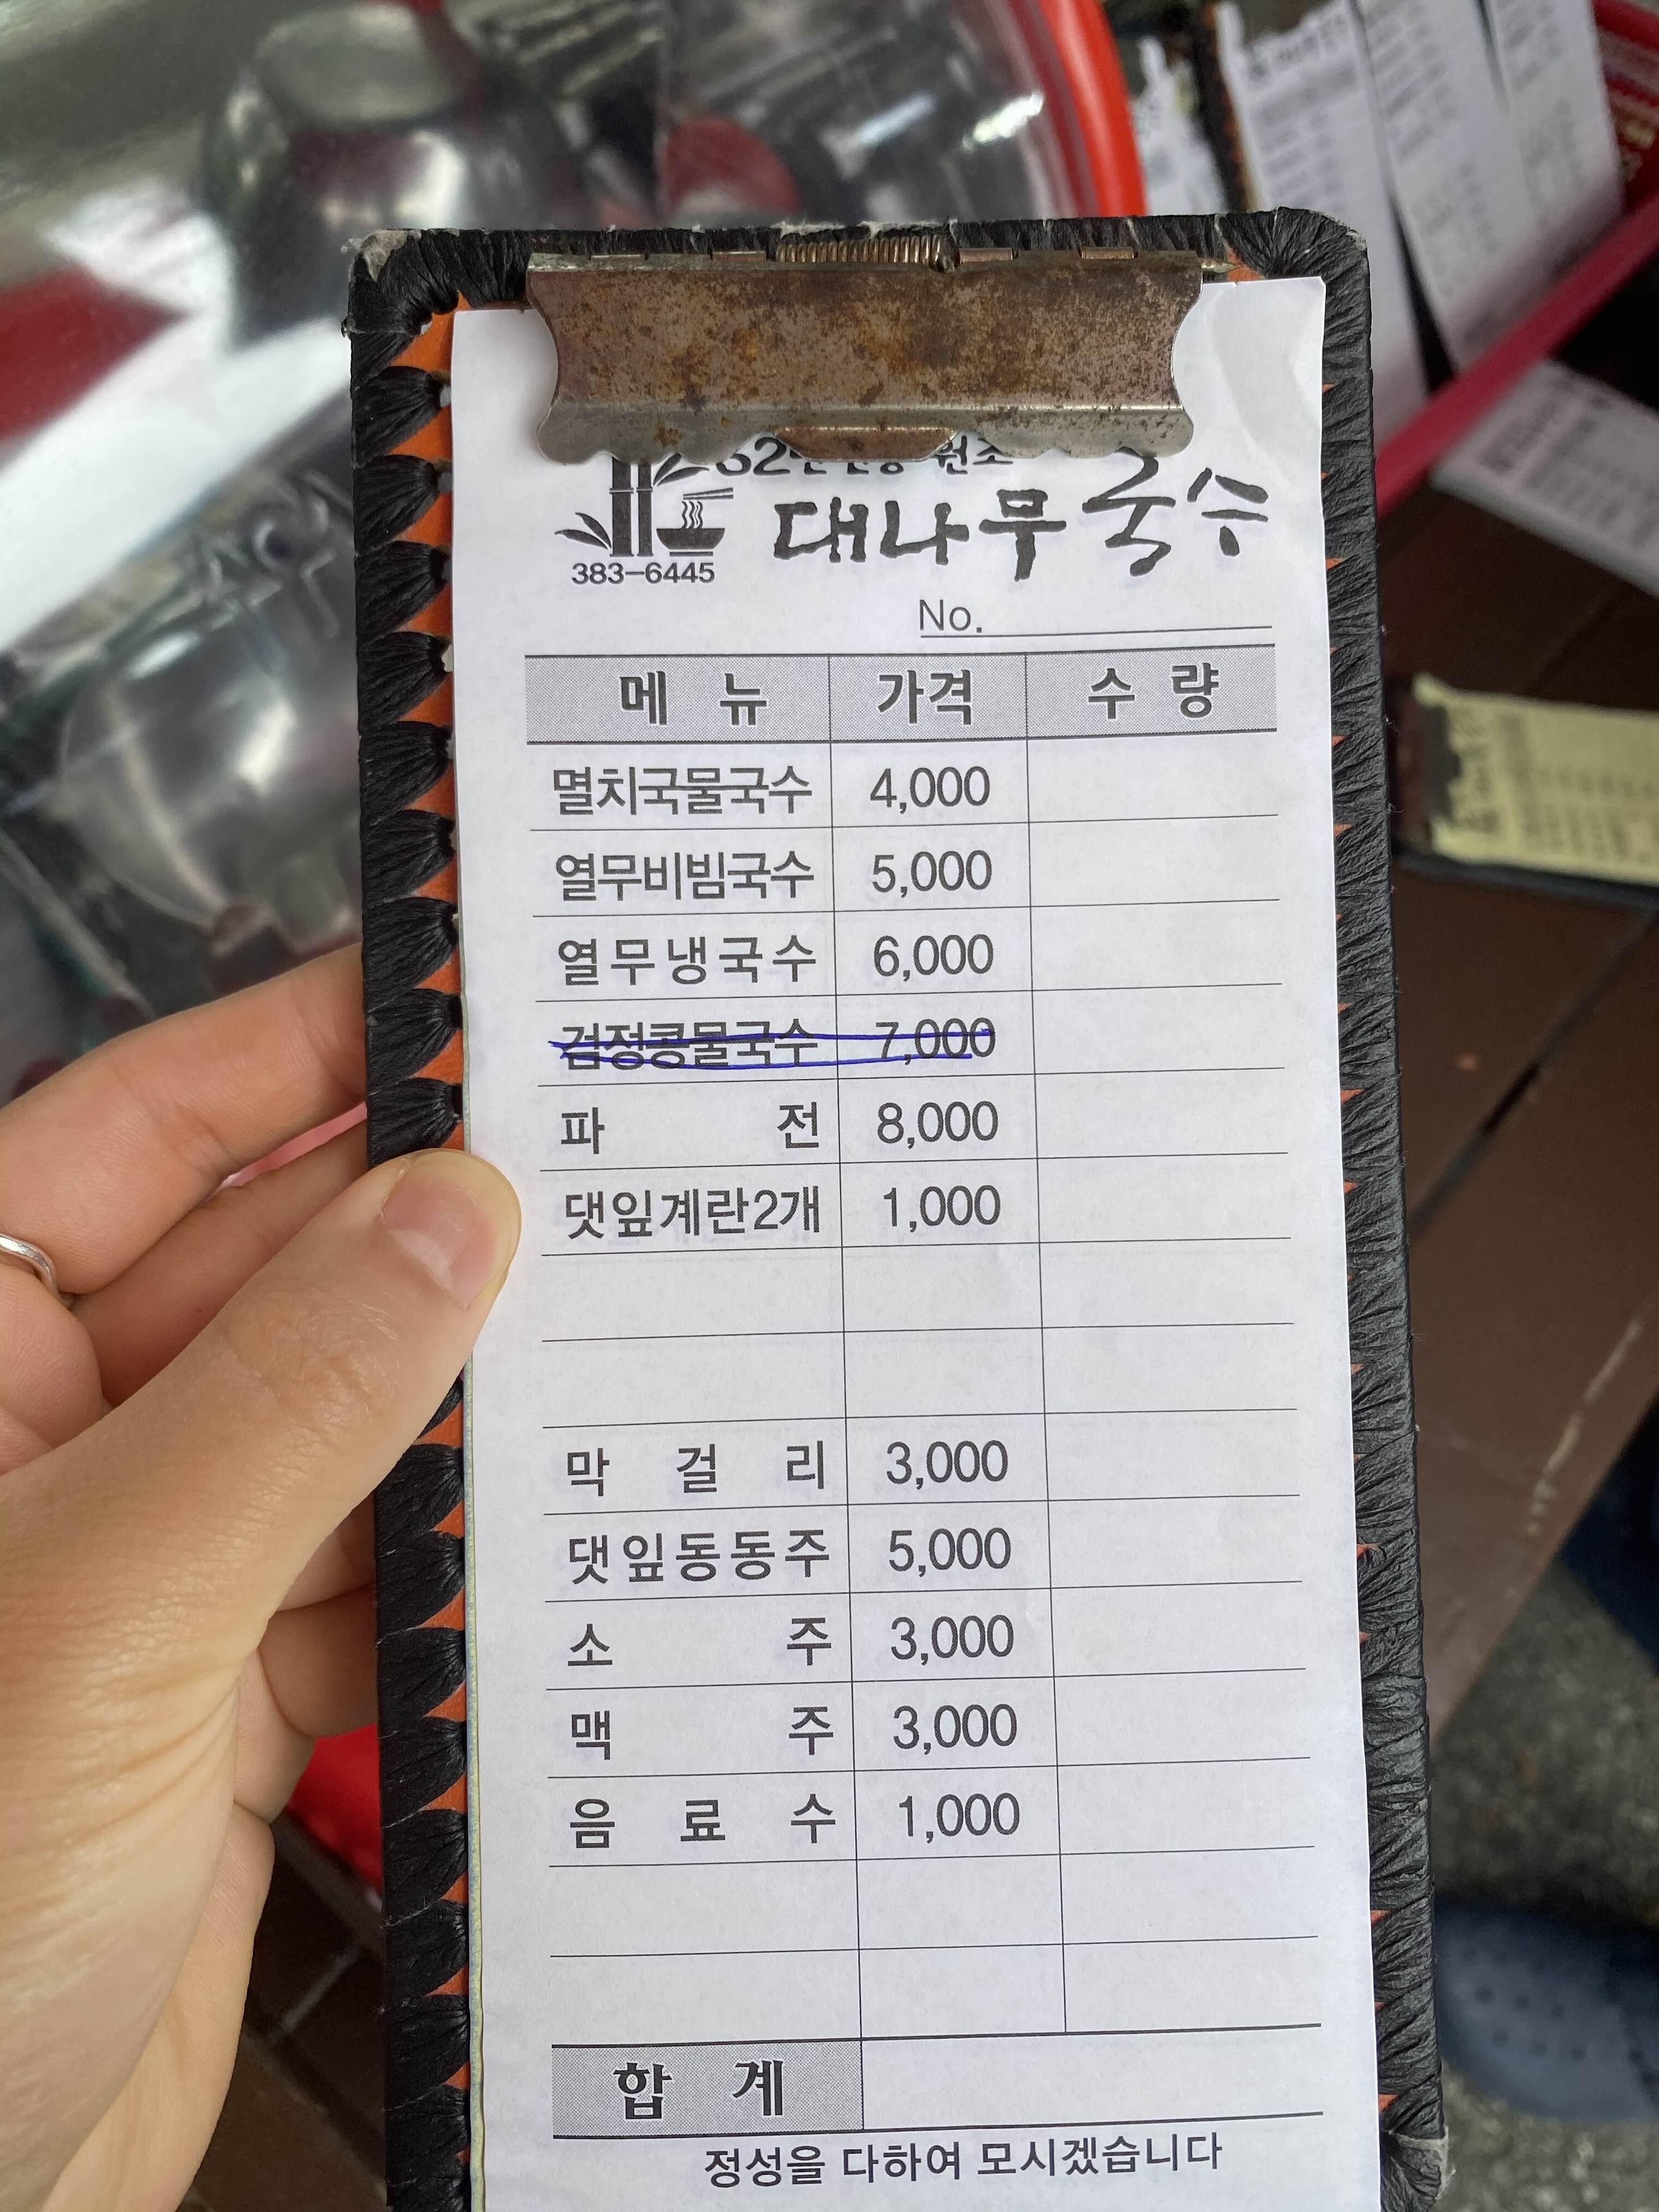 원조
대나무국수
383-6445
No.
메 뉴 가격 수 량
멸치국물국수 4,000
열무비빔국수 5,000
열무냉국수 6,000
검정콩물국수 7,000
파 전 8,000
댓잎계란2개 1,000
막 걸 리 3,000
댓잎동동주 5,000
소 주 3,000
맥 주 3,000
음 료 수 1,000
합 계
정성을 다하여 모시겠습니다